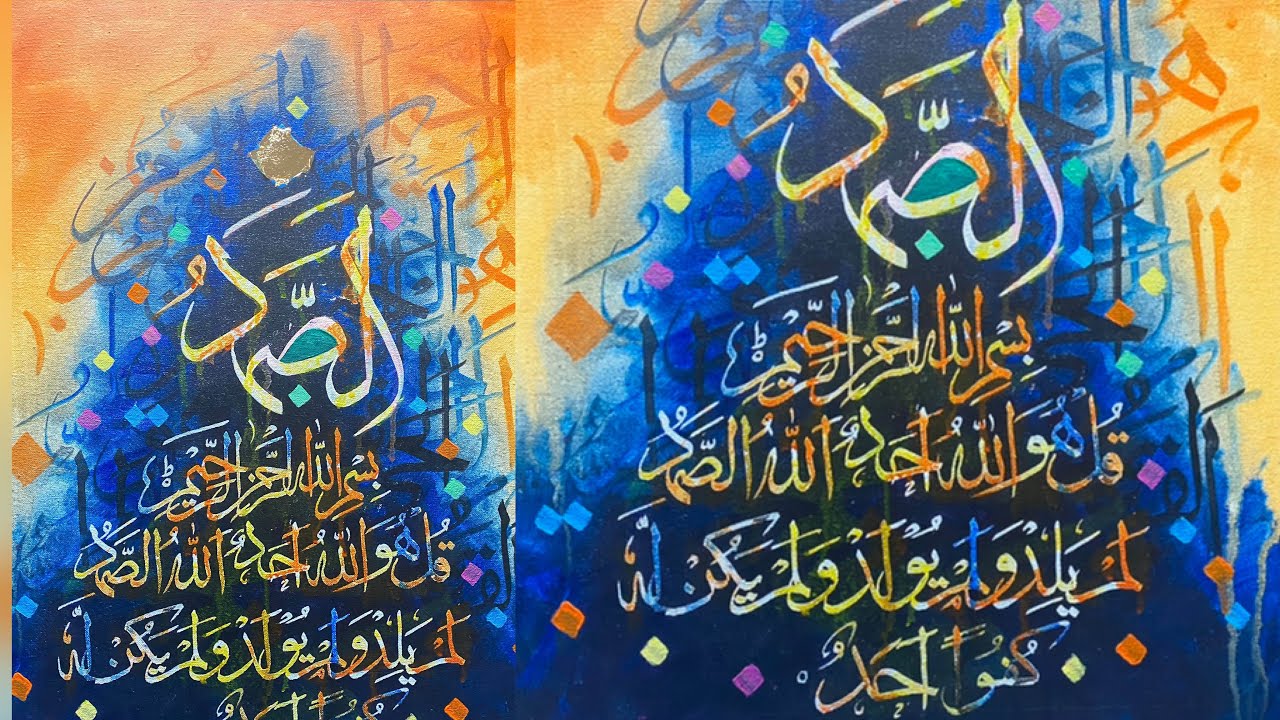 الصَّمَدُ
بِسْمِ اللهِ الرَّحْمٰنِ الرَّحِيْمِ
قُلْ هُوَ اللهُ اَحَدٌ اَللهُ الصَّمَدُ
لَمْ يَلِدْ وَلَمْ يُوْلَدْ وَلَمْ يَكُنْ لَّهٗ
كُفُوًا اَحَدٌ
الصَّمَدُ
بِسْمِ اللهِ الرَّحْمٰنِ الرَّحِيْمِ
قُلْ هُوَ اللهُ اَحَدٌ اَللهُ الصَّمَدُ
لَمْ يَلِدْ وَلَمْ يُوْلَدْ وَلَمْ يَكُنْ لَّهٗ
كُفُوًا اَحَدٌ